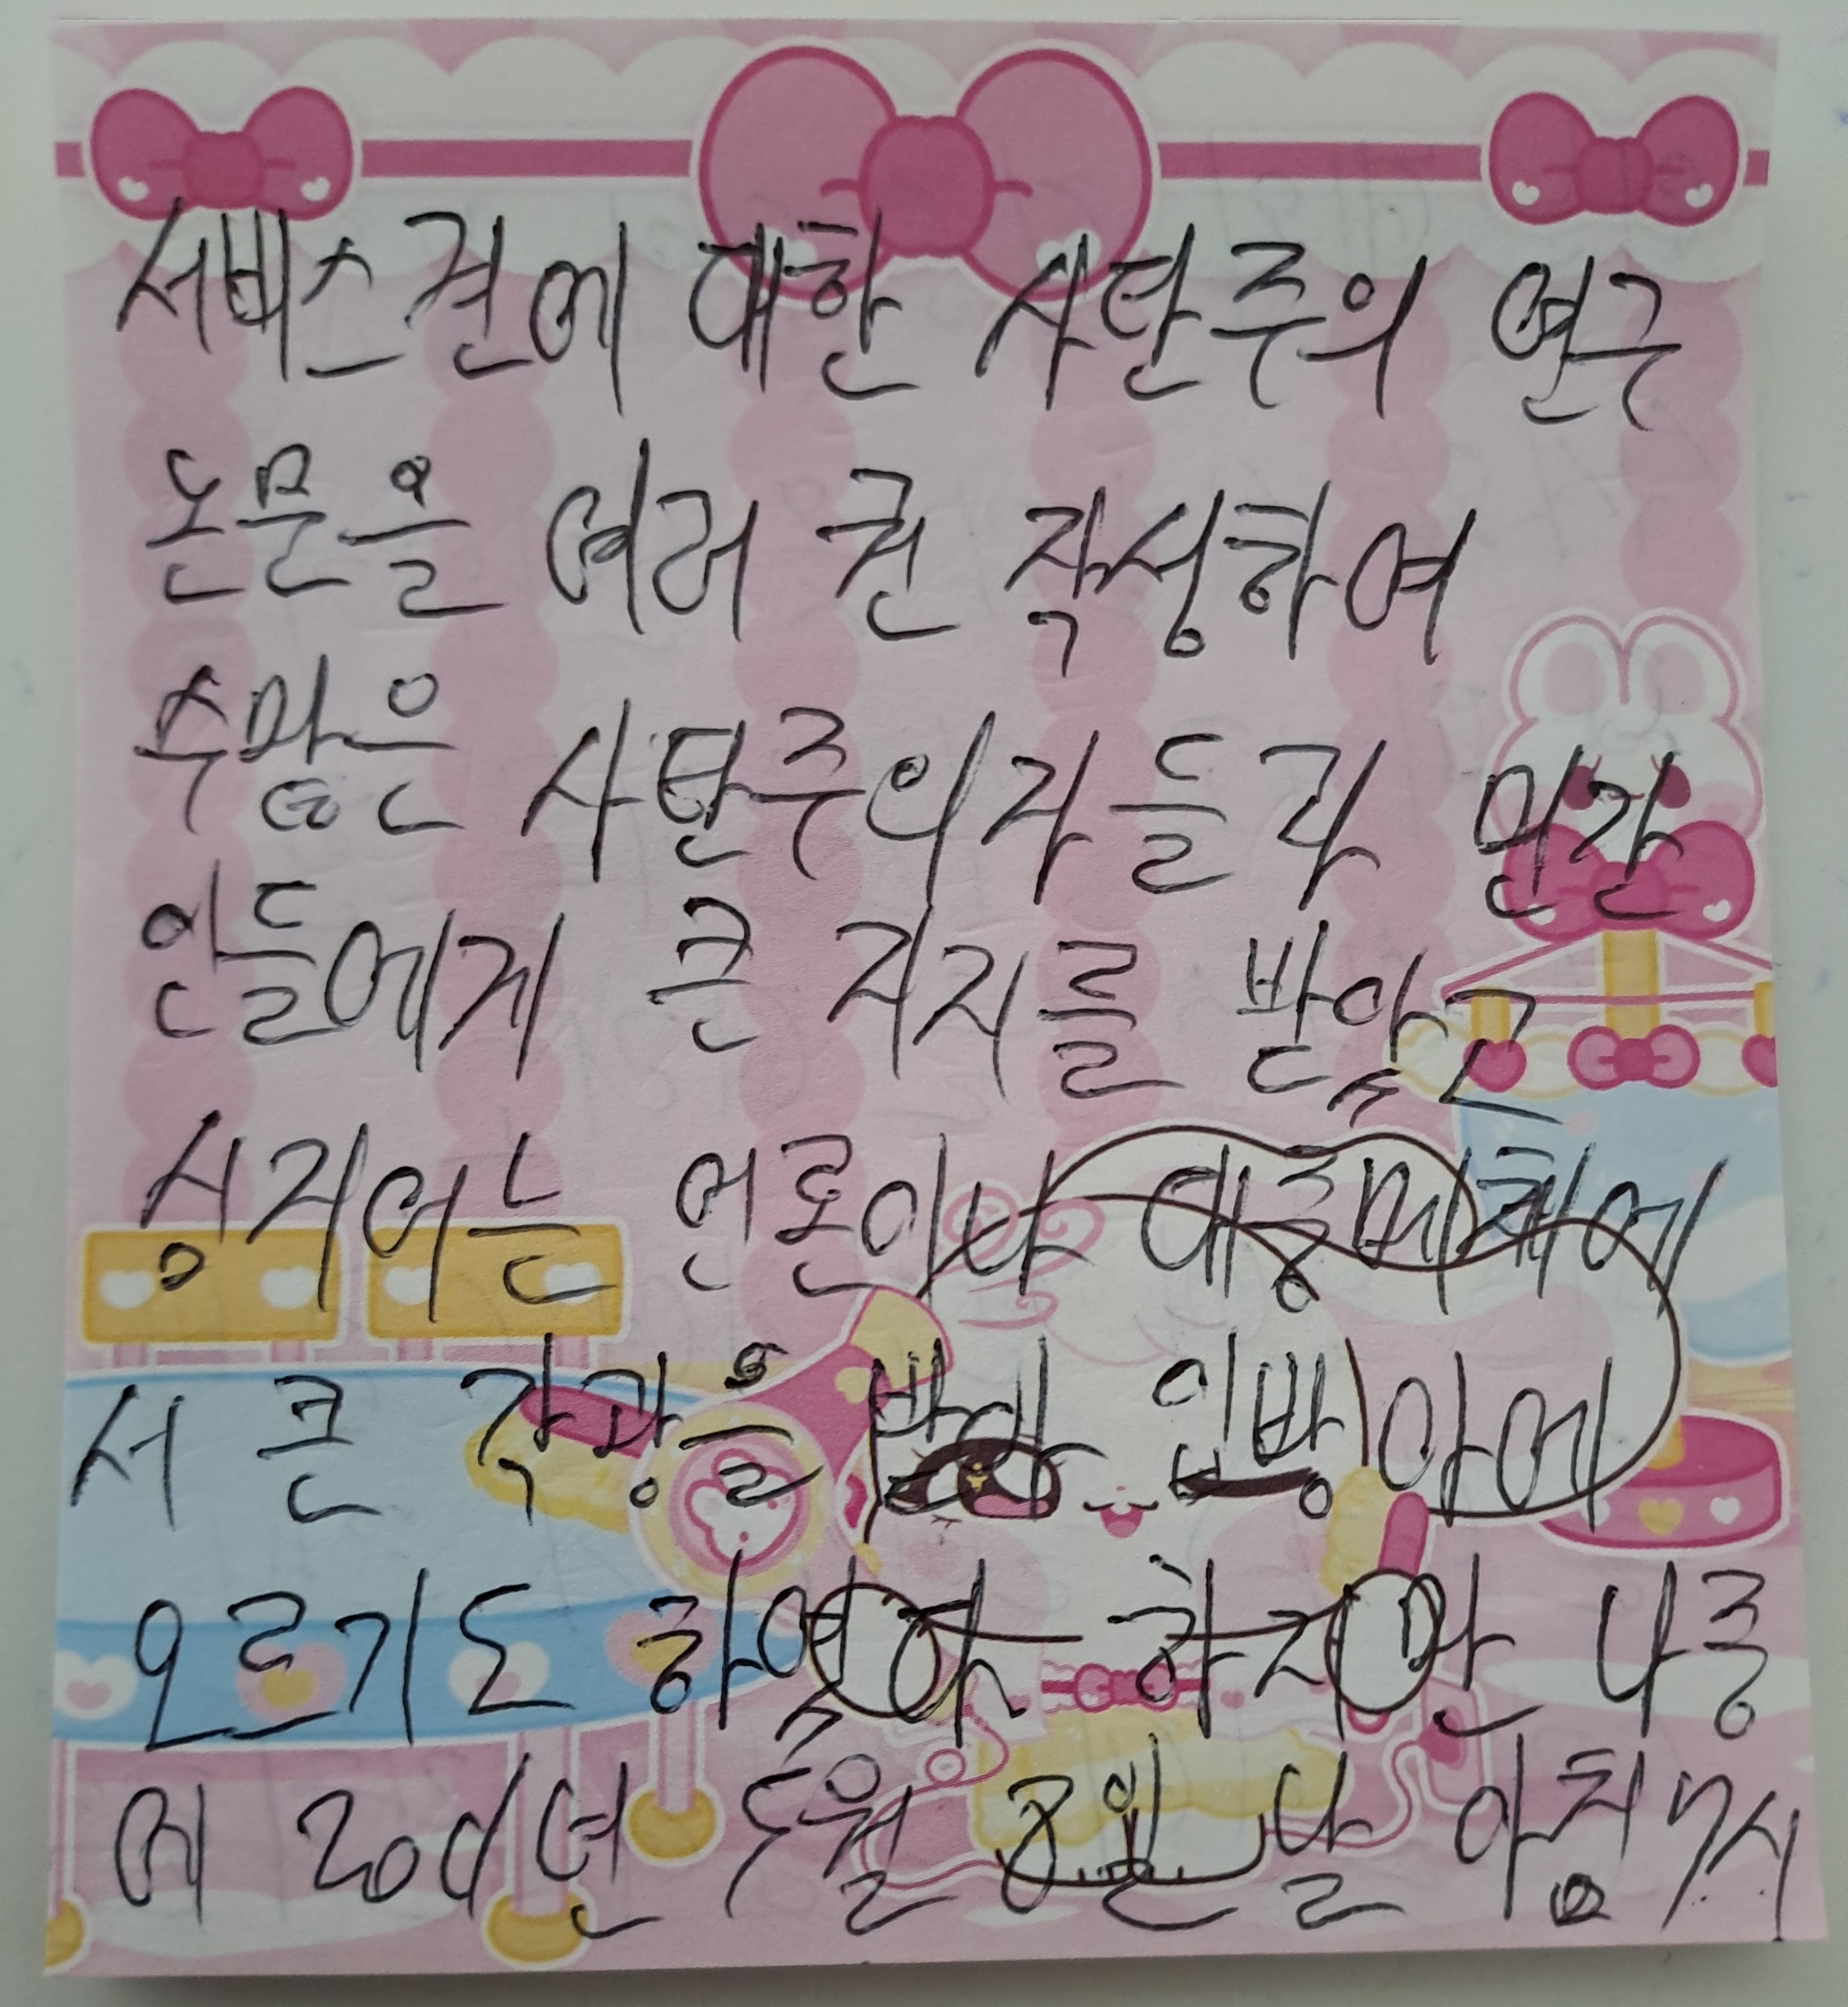 서비스견에 대한 사탄주의 연구
논문을 여러 권 작성하여
수많은 사탄주의자들과 민간
인들에게 큰 지지를 받았고
심지어는 언론이나 대중매체에
서 큰 각광을 받아 인방아에
오르기도 하였다 하지만 나중
에 2001년 5월 8일 날 아침 7시